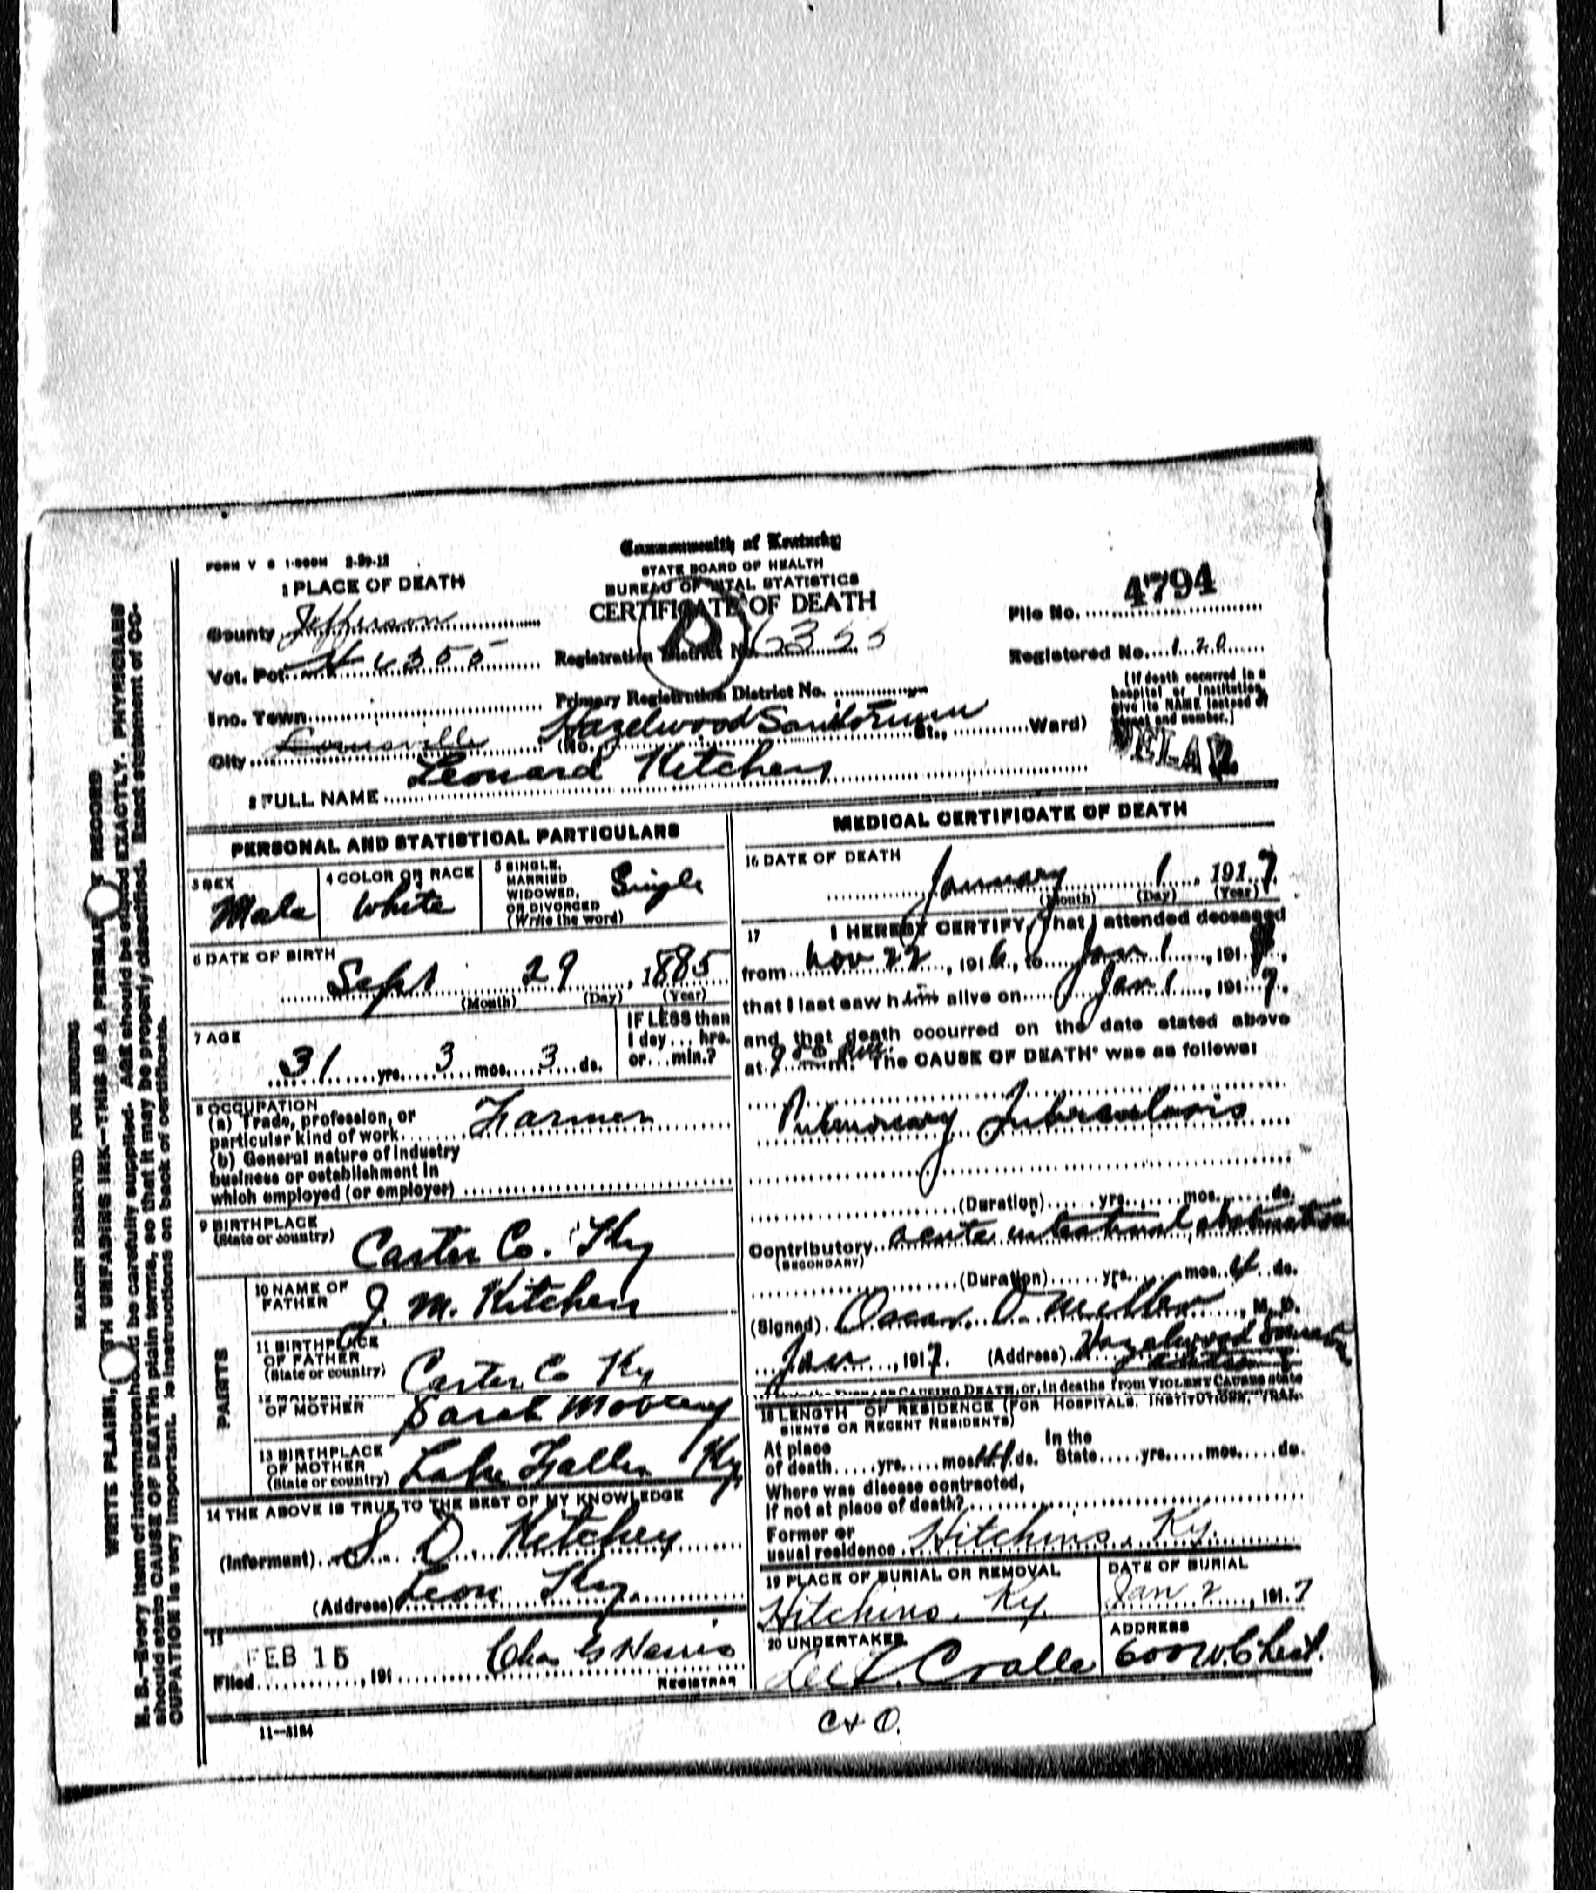 Commonwealth of Kentucky
STATE BOARD OF HEALTH
BUREAU OF VITAL STATISTICS
CERTIFICATE OF DEATH
1 PLACE OF DEATH
County Jefferson
Vot. Pct. 6355
Registration District No. 6355
File No. 4794
Registered No. 120
Primary Registration District No.
Inc. Town
City Louisville (No. Hazelwood Sanitorium St., Ward)
[If death occurred in a hospital or institution, give its NAME instead of street and number.]
2 FULL NAME Leonard Kitchen
PERSONAL AND STATISTICAL PARTICULARS
3 SEX Male
4 COLOR OR RACE White
5 SINGLE, MARRIED WIDOWED, OR DIVORCED (Write the word) Single
6 DATE OF BIRTH
Sept 29, 1885
(Month) (Day) (Year)
7 AGE
31 yrs. 3 mos. 3 ds.
IF LESS than 1 day ... hrs. or ... min.?
8 OCCUPATION
(a) Trade, profession, or
particular kind of work Farmer
(b) General nature of industry
business or establishment in
which employed (or employer)
9 BIRTHPLACE
(State or country) Carter Co. Ky
PARENTS
10 NAME OF FATHER J. M. Kitchen
11 BIRTHPLACE OF FATHER (State or country) Carter Co Ky
OF MOTHER Sarah Mobley
13 BIRTHPLACE OF MOTHER (State or country) Ky
14 THE ABOVE IS TRUE TO THE BEST OF MY KNOWLEDGE
(Informant) S. D. Kitchen
(Address) Leon Ky.
15
Filed FEB 15, 191 Chas G Harris
REGISTRAR
11—3184
MEDICAL CERTIFICATE OF DEATH
16 DATE OF DEATH
January 1, 1917
(Month) (Day) (Year)
17 I HEREBY CERTIFY, That I attended deceased
from Nov 22, 1916, to Jan 1, 191
that I last saw him alive on Jan 1, 1917,
and that death occurred on the date stated above
at m. The CAUSE OF DEATH* was as follows:
Pulmonary Tuberculosis
(Duration) yrs. mos. ds.
Contributory acute intestinal obstruction
(SECONDARY)
(Duration) yrs. mos. 4 ds.
(Signed) Oscar O. Miller, M. D.
Jan, 1917. (Address) Hazelwood
CAUSING DEATH, or, in deaths from VIOLENT CAUSES state
18 LENGTH OF RESIDENCE (FOR HOSPITALS, INSTITUTIONS, TRANSIENTS OR RECENT RESIDENTS)
At place of death yrs. mos. ds. In the State yrs. mos. ds.
Where was disease contracted,
if not at place of death?
Former or
usual residence Hitchins, Ky.
19 PLACE OF BURIAL OR REMOVAL
Hitchins, Ky.
DATE OF BURIAL
Jan 2, 1917
20 UNDERTAKER
Cralle
ADDRESS
600 W. Chest.
C & O.
MARGIN RESERVED FOR BINDING
WRITE PLAINLY, WITH UNFADING INK—THIS IS A PERMANENT RECORD
N. B.—Every item of information should be carefully supplied. AGE should be stated EXACTLY. PHYSICIANS
should state CAUSE OF DEATH in plain terms, so that it may be properly classified. Exact statement of OC-
CUPATION is very important. See instructions on back of certificate.